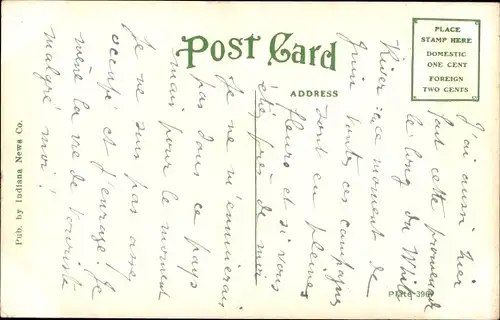 Post Card
ADDRESS
PLACE
STAMP HERE
DOMESTIC
ONE CENT
FOREIGN
TWO CENTS
J'ai aussi hier
fait cette promenade
le long du White
River. En ce moment de
Juin toutes ces campagnes
sont en pleines
fleurs et si vous
étiez près de moi
Je ne m'ennuierais
pas dans ce pays
mais pour le moment
Je ne suis pas assez
occupé et j'enrage! Je
mène la vie de touriste
malgré moi!
Pub. by Indiana News Co.